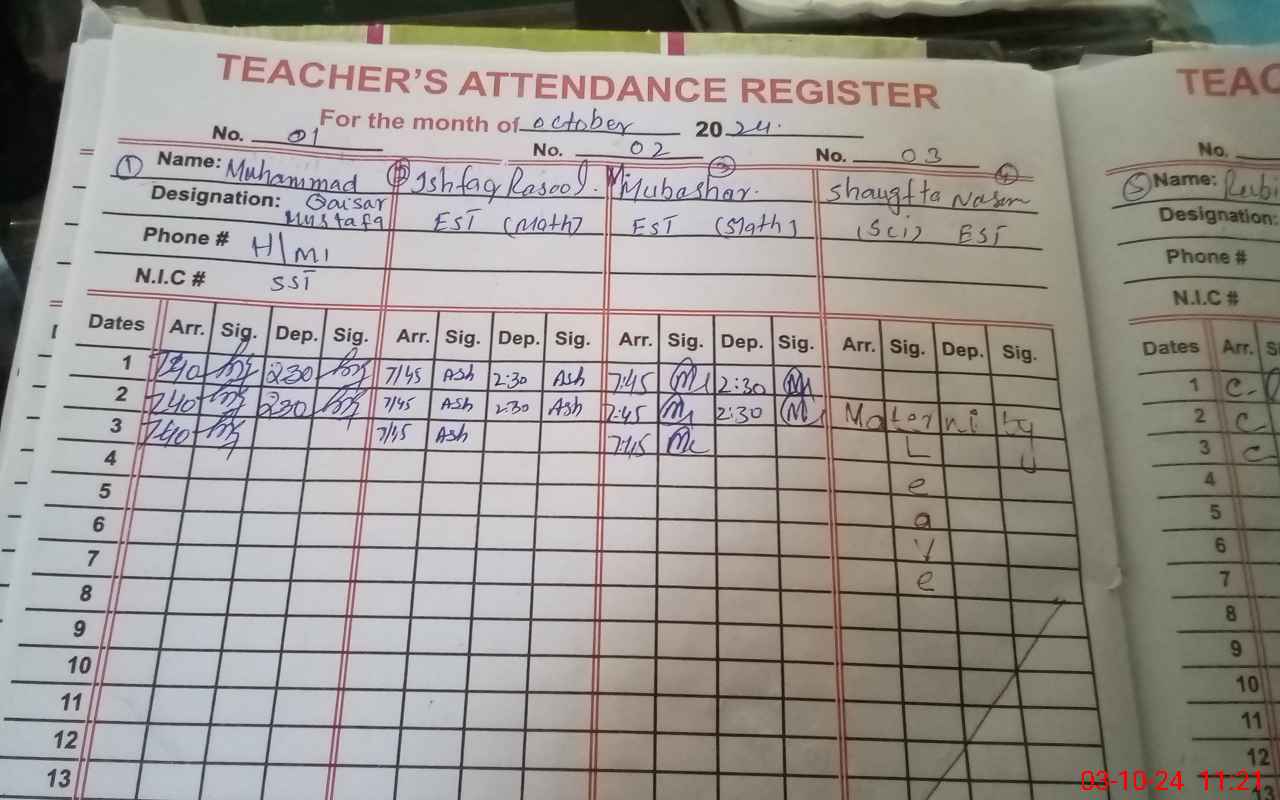 TEACHER'S ATTENDANCE REGISTER
For the month of october 2024.
No. 01 No. 02 No. 03
① Name: Muhammad Ishfaq Rasool. Mubashar. ③ Shaugfta Nasim ④
Designation: Qaisar Mustafa EST (Math) EST (Math) (Sci) EST
Phone # H/M
N.I.C # SST
Dates Arr. Sig. Dep. Sig. Arr. Sig. Dep. Sig. Arr. Sig. Dep. Sig. Arr. Sig. Dep. Sig.
1 740 230 7/45 Ash 2:30 Ash 7:45 2:30
2 740 230 7/45 Ash 2:30 Ash 7:45 2:30 Maternity
3 740 7/45 Ash 7:45 L
4 e
5 a
6 v
7 e
8
9
10
11
12
13
TEAC
No.
⑤ Name: Rubi
Designation:
Phone #
N.I.C #
Dates Arr. S
1 C-
2 C
3 C
4
5
6
7
8
9
10
11
12
13
03-10-24 11:21